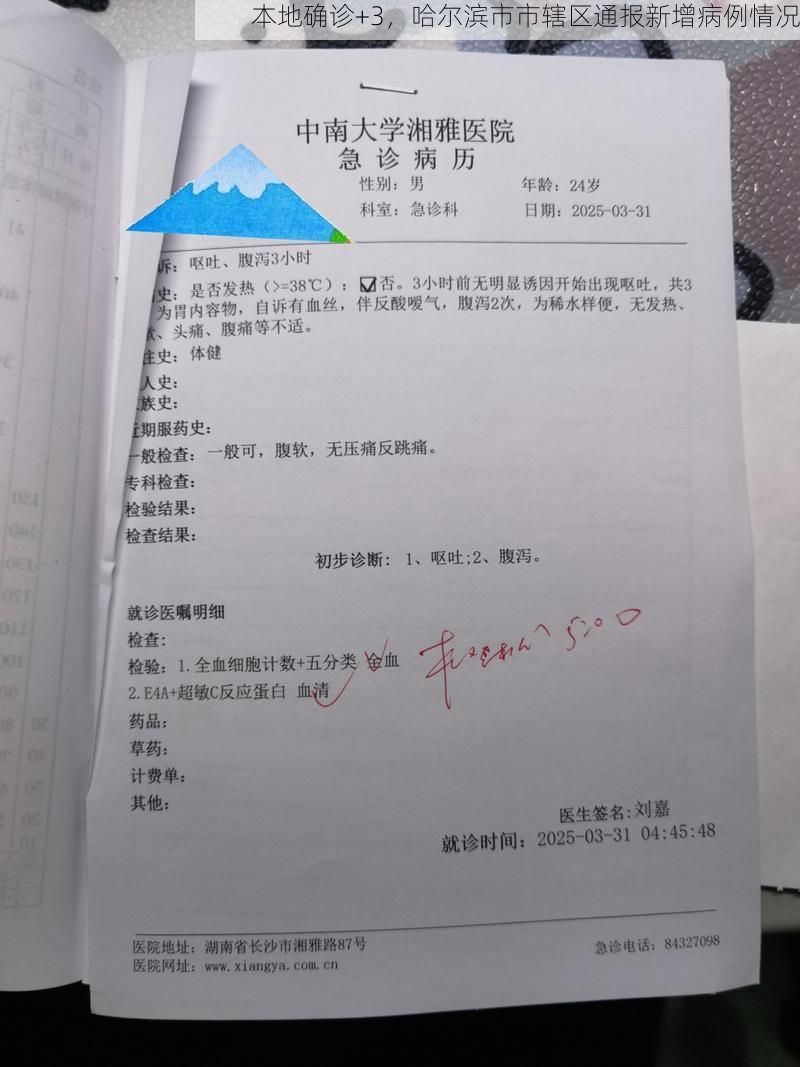 本地确诊+3，哈尔滨市市辖区通报新增病例情况
中南大学湘雅医院
急诊病历
性别：男 年龄：24岁
科室：急诊科 日期：2025-03-31
诉：呕吐、腹泻3小时
史：是否发热（>=38℃）：☑否。3小时前无明显诱因开始出现呕吐，共3
为胃内容物，自诉有血丝，伴反酸嗳气，腹泻2次，为稀水样便，无发热、
、头痛、腹痛等不适。
往史：体健
人史：
族史：
近期服药史：
一般检查：一般可，腹软，无压痛反跳痛。
专科检查：
检验结果：
检查结果：
初步诊断： 1、呕吐;2、腹泻。
就诊医嘱明细
检查：
检验：1.全血细胞计数+五分类 全血
2.E4A+超敏C反应蛋白 血清
5:00
药品：
草药：
计费单：
其他：
医生签名:刘嘉
就诊时间：2025-03-31 04:45:48
医院地址：湖南省长沙市湘雅路87号 急诊电话：84327098
医院网址：www.xiangya.com.cn